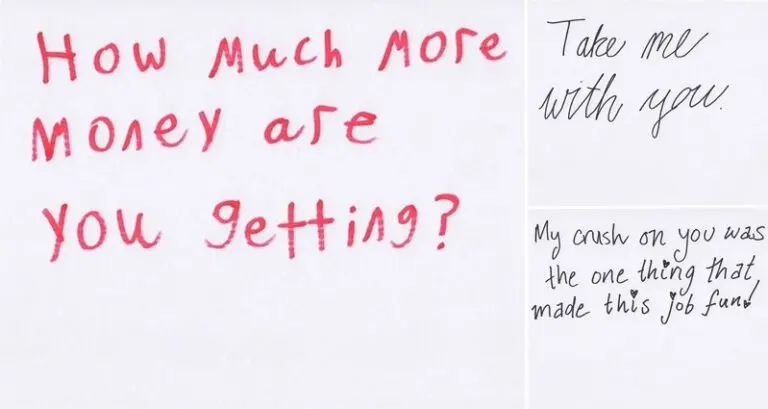 How Much More
Money are
you getting?
Take me
with you.
My crush on you was
the one thing that
made this job fun!